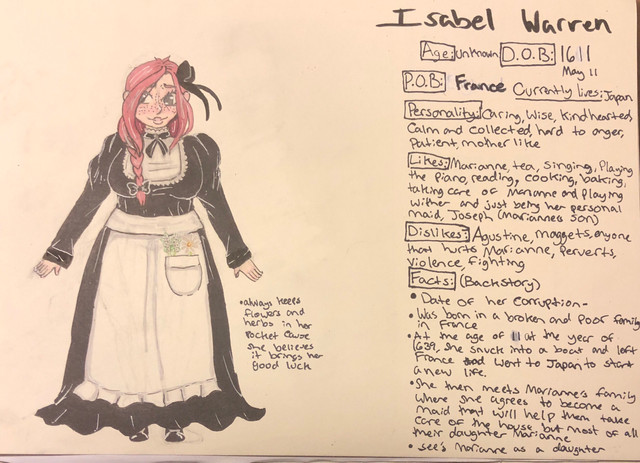 Isabel Warren
Age: unknown D.O.B: 1611
May 11
P.O.B: France Currently lives: Japan
Personality: Caring, Wise, kindhearted,
Calm and collected, hard to anger,
Patient, mother like
Likes: Marianne, tea, Singing, Playing
the Piano, reading, cooking, baking,
taking care of Marianne and Playing
wither and just being her personal
maid, Joseph (Marianne's son)
Dislikes: Agustine, maggets, anyone
that hurts Marianne, Perverts,
violence, fighting
Facts: (Backstory)
• Date of her corruption-
• Was born in a broken and poor family
in France
• At the age of 11 at the year of
1639, she snuck into a boat and left
France and went to Japan to start
a new life.
• She then meets Marianne's family
where she agrees to become a
maid that will help them take
care of the house but most of all
their daughter Marianne
• see's Marianne as a daughter
• always keeps
flowers and
herbs in her
pocket cause
she believes
it brings her
good luck